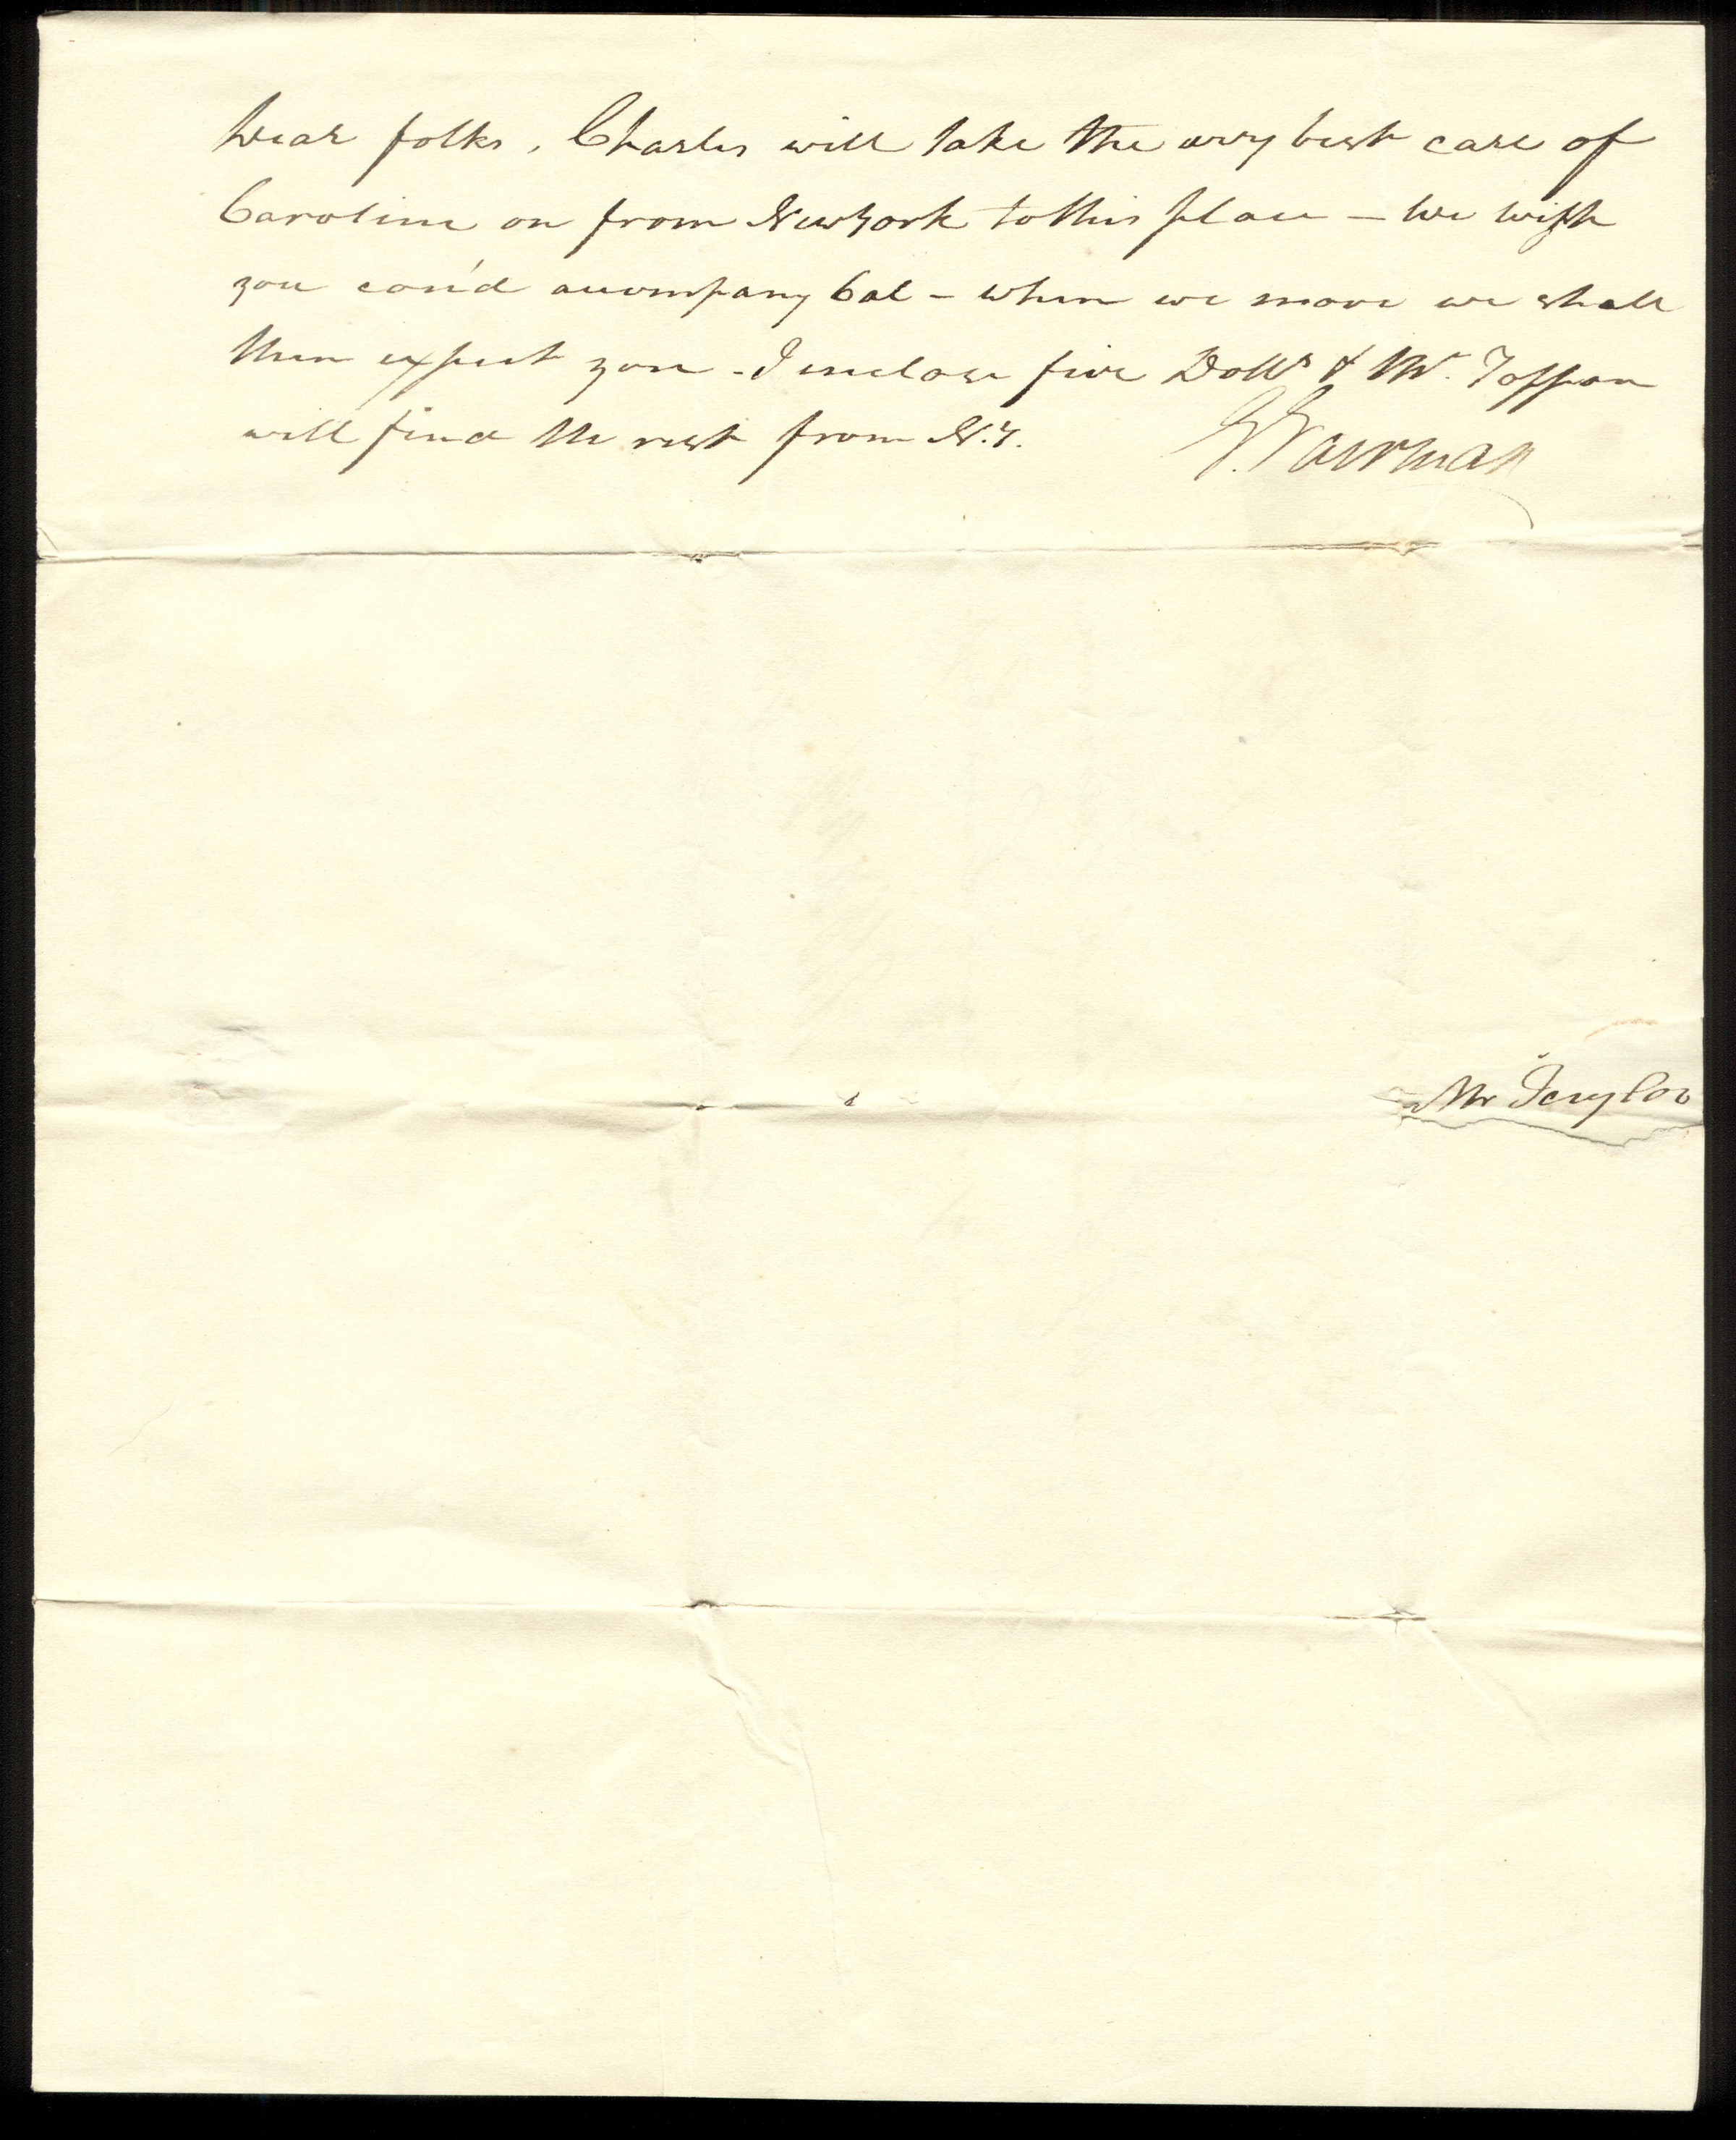 Dear folks, Charles will take the very best care of
Caroline on from New York to this place – We wish
you cou'd accompany Cal – when we move we shall
then expect you – I enclose five Dolls & Mr. Toppan
will find the rest from N.Y.
G. Fairman
Mr Taylor